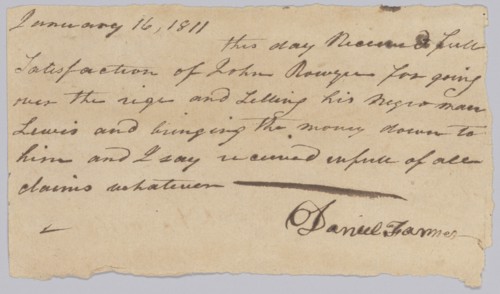 January 16, 1811
this day Received full
Satisfaction of John Rowyer for going
over the rige and Selling his Negro man
Lewis and bringing the money down to
him and I say received infull of all
claims whatever
Daniel Farmer